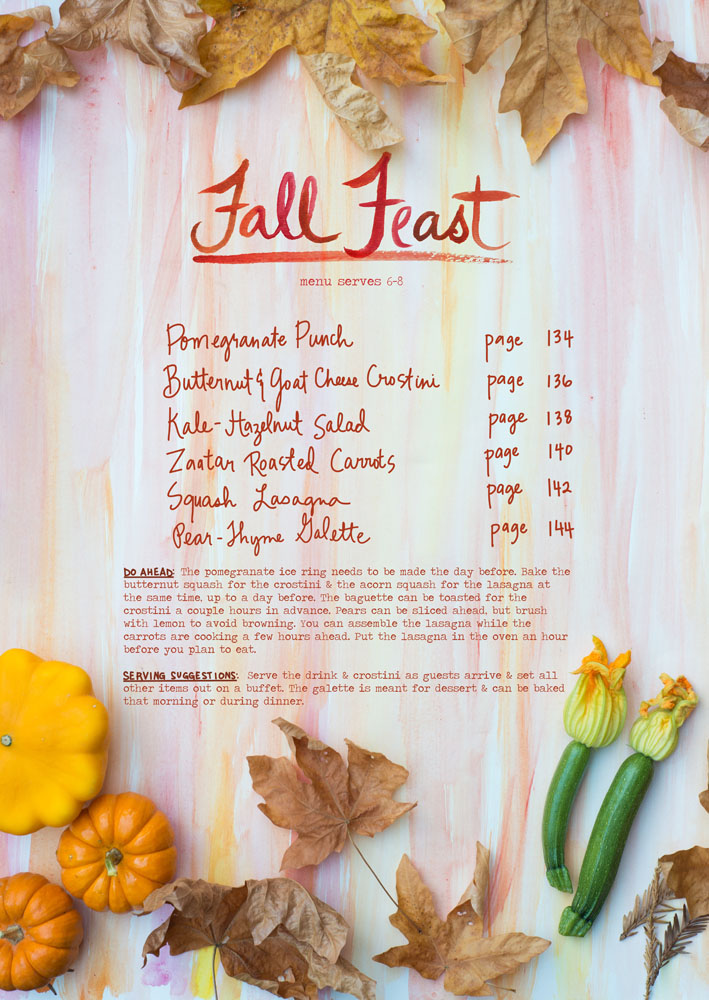 Fall Feast
menu serves 6-8
Pomegranate Punch page 134
Butternut & Goat Cheese Crostini page 136
Kale-Hazelnut Salad page 138
Zaatar Roasted Carrots page 140
Squash Lasagna page 142
Pear-Thyme Galette page 144
DO AHEAD: The pomegranate ice ring needs to be made the day before. Bake the
butternut squash for the crostini & the acorn squash for the lasagna at
the same time, up to a day before. The baguette can be toasted for the
crostini a couple hours in advance. Pears can be sliced ahead, but brush
with lemon to avoid browning. You can assemble the lasagna while the
carrots are cooking a few hours ahead. Put the lasagna in the oven an hour
before you plan to eat.
SERVING SUGGESTIONS: Serve the drink & crostini as guests arrive & set all
other items out on a buffet. The galette is meant for dessert & can be baked
that morning or during dinner.